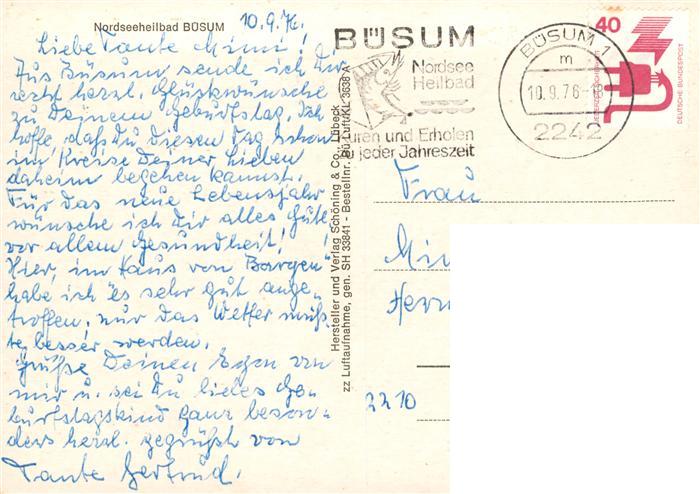 Nordseeheilbad BÜSUM
10.9.76.
Liebe Tante Mimi!
Aus Büsum sende ich Dir
recht herzl. Glückwünsche
zu Deinem Geburtstag. Ich
hoffe, daß du diesen Tag schon
im Kreise Deiner Lieben
daheim begehen kannst.
Für das neue Lebensjahr
wünsche ich Dir alles Gute
vor allem Gesundheit!
Hier, im Haus von Bargen
habe ich es sehr gut ange-
troffen, nur das Wetter müß-
te besser werden.
Grüße Deinen Egon von
mir u. sei Du liebes Ge-
burtstagskind ganz beson-
ders herzl. gegrüßt von
Tante Gertrud.
Hersteller und Verlag Schöning & Co., Lübeck
zz Luftaufnahme, gen. SH 33841 - Bestellnr. Bü Luft/KL 3638
BÜSUM
Nordsee
Heilbad
Kuren und Erholen
zu jeder Jahreszeit
BÜSUM 1
m
10.9.76
2242
40
DEUTSCHE BUNDESPOST
Frau
Herrn
2210